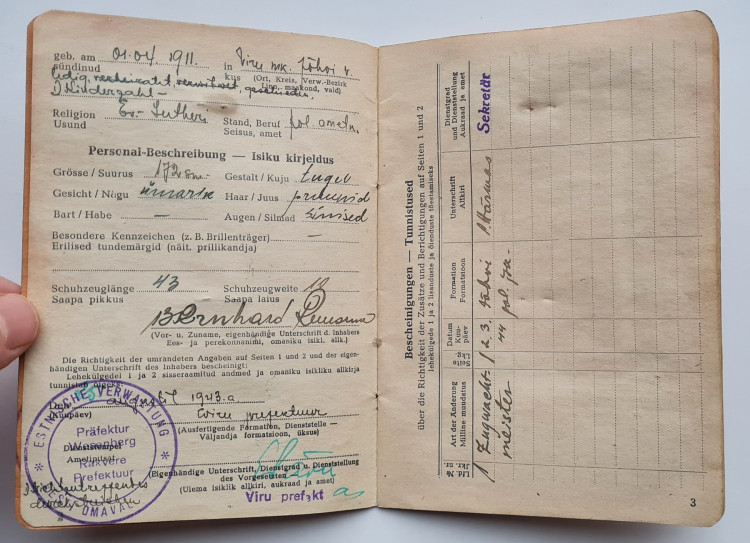 geb. am 01.04 1911. in Viru mk. Jõhvi v.
sündinud kus (Ort, Kreis, Verw.-Bezirk
linn, maakond, vald)
ledig, verheiratet, verwitwet, geschieden,
Kinderzahl —
Religion Ev.- Luther. Stand, Beruf pol. ametn.
Usund Seisus, amet
Personal-Beschreibung — Isiku kirjeldus
Grösse / Suurus 172 sm. Gestalt / Kuju
Gesicht / Nägu ümarik Haar / Juus pruunid
Bart / Habe — Augen / Silmad sinised
Besondere Kennzeichen (z. B. Brillenträger) —
Erilised tundemärgid (näit. prillikandja)
Schuhzeuglänge 43 Schuhzeugweite
Saapa pikkus Saapa laius
Bernhard
(Vor- u. Zuname, eigenhändige Unterschrift d. Inhabers
Ees- ja perekonnanimi, omaniku isikl. allk.)
Die Richtigkeit der umrandeten Angaben auf Seiten 1 und 2 und der eigen-
händigen Unterschrift des Inhabers bescheinigt:
Lehekülgedel 1 ja 2 sisseraamitud andmed ja omaniku isikliku allkirja
tunnistab õigeks:
Den august 1943.a
(Kuupäev) Viru prefektuur
(Ausfertigende Formation, Dienststelle —
Väljaandja formatsioon, üksus)
ESTNISCHE VERWALTUNG
Präfektur
Wesenberg
Dienststempel
Ametipitsat
Rakvere
Prefektuur
EESTI OMAVAL
(Eigenhändige Unterschrift, Dienstgrad u. Dienststellung
des Vorgesetzten)
(Ülema isiklik allkiri, aukraad ja amet)
Viru prefekt
Nichtzutreffendes
durchstreichen
Bescheinigungen — Tunnistused
über die Richtigkeit der Zusätze und Berichtigungen auf Seiten 1 und 2
lehekülgede 1 ja 2 lisanduste ja õienduste tõestamiseks
Lfd. №
Jkr. nr.
Art der Änderung
Milline muudatus
Seite
Lkg.
Datum
Kuu-
päev
Formation
Formatsioon
Unterschrift
Allkiri
Dienstgrad
und Dienststellung
Aukraad ja amet
1 Zugwacht- 1 2 3. Jõhvi Sekretär
meister 44 pol.
3